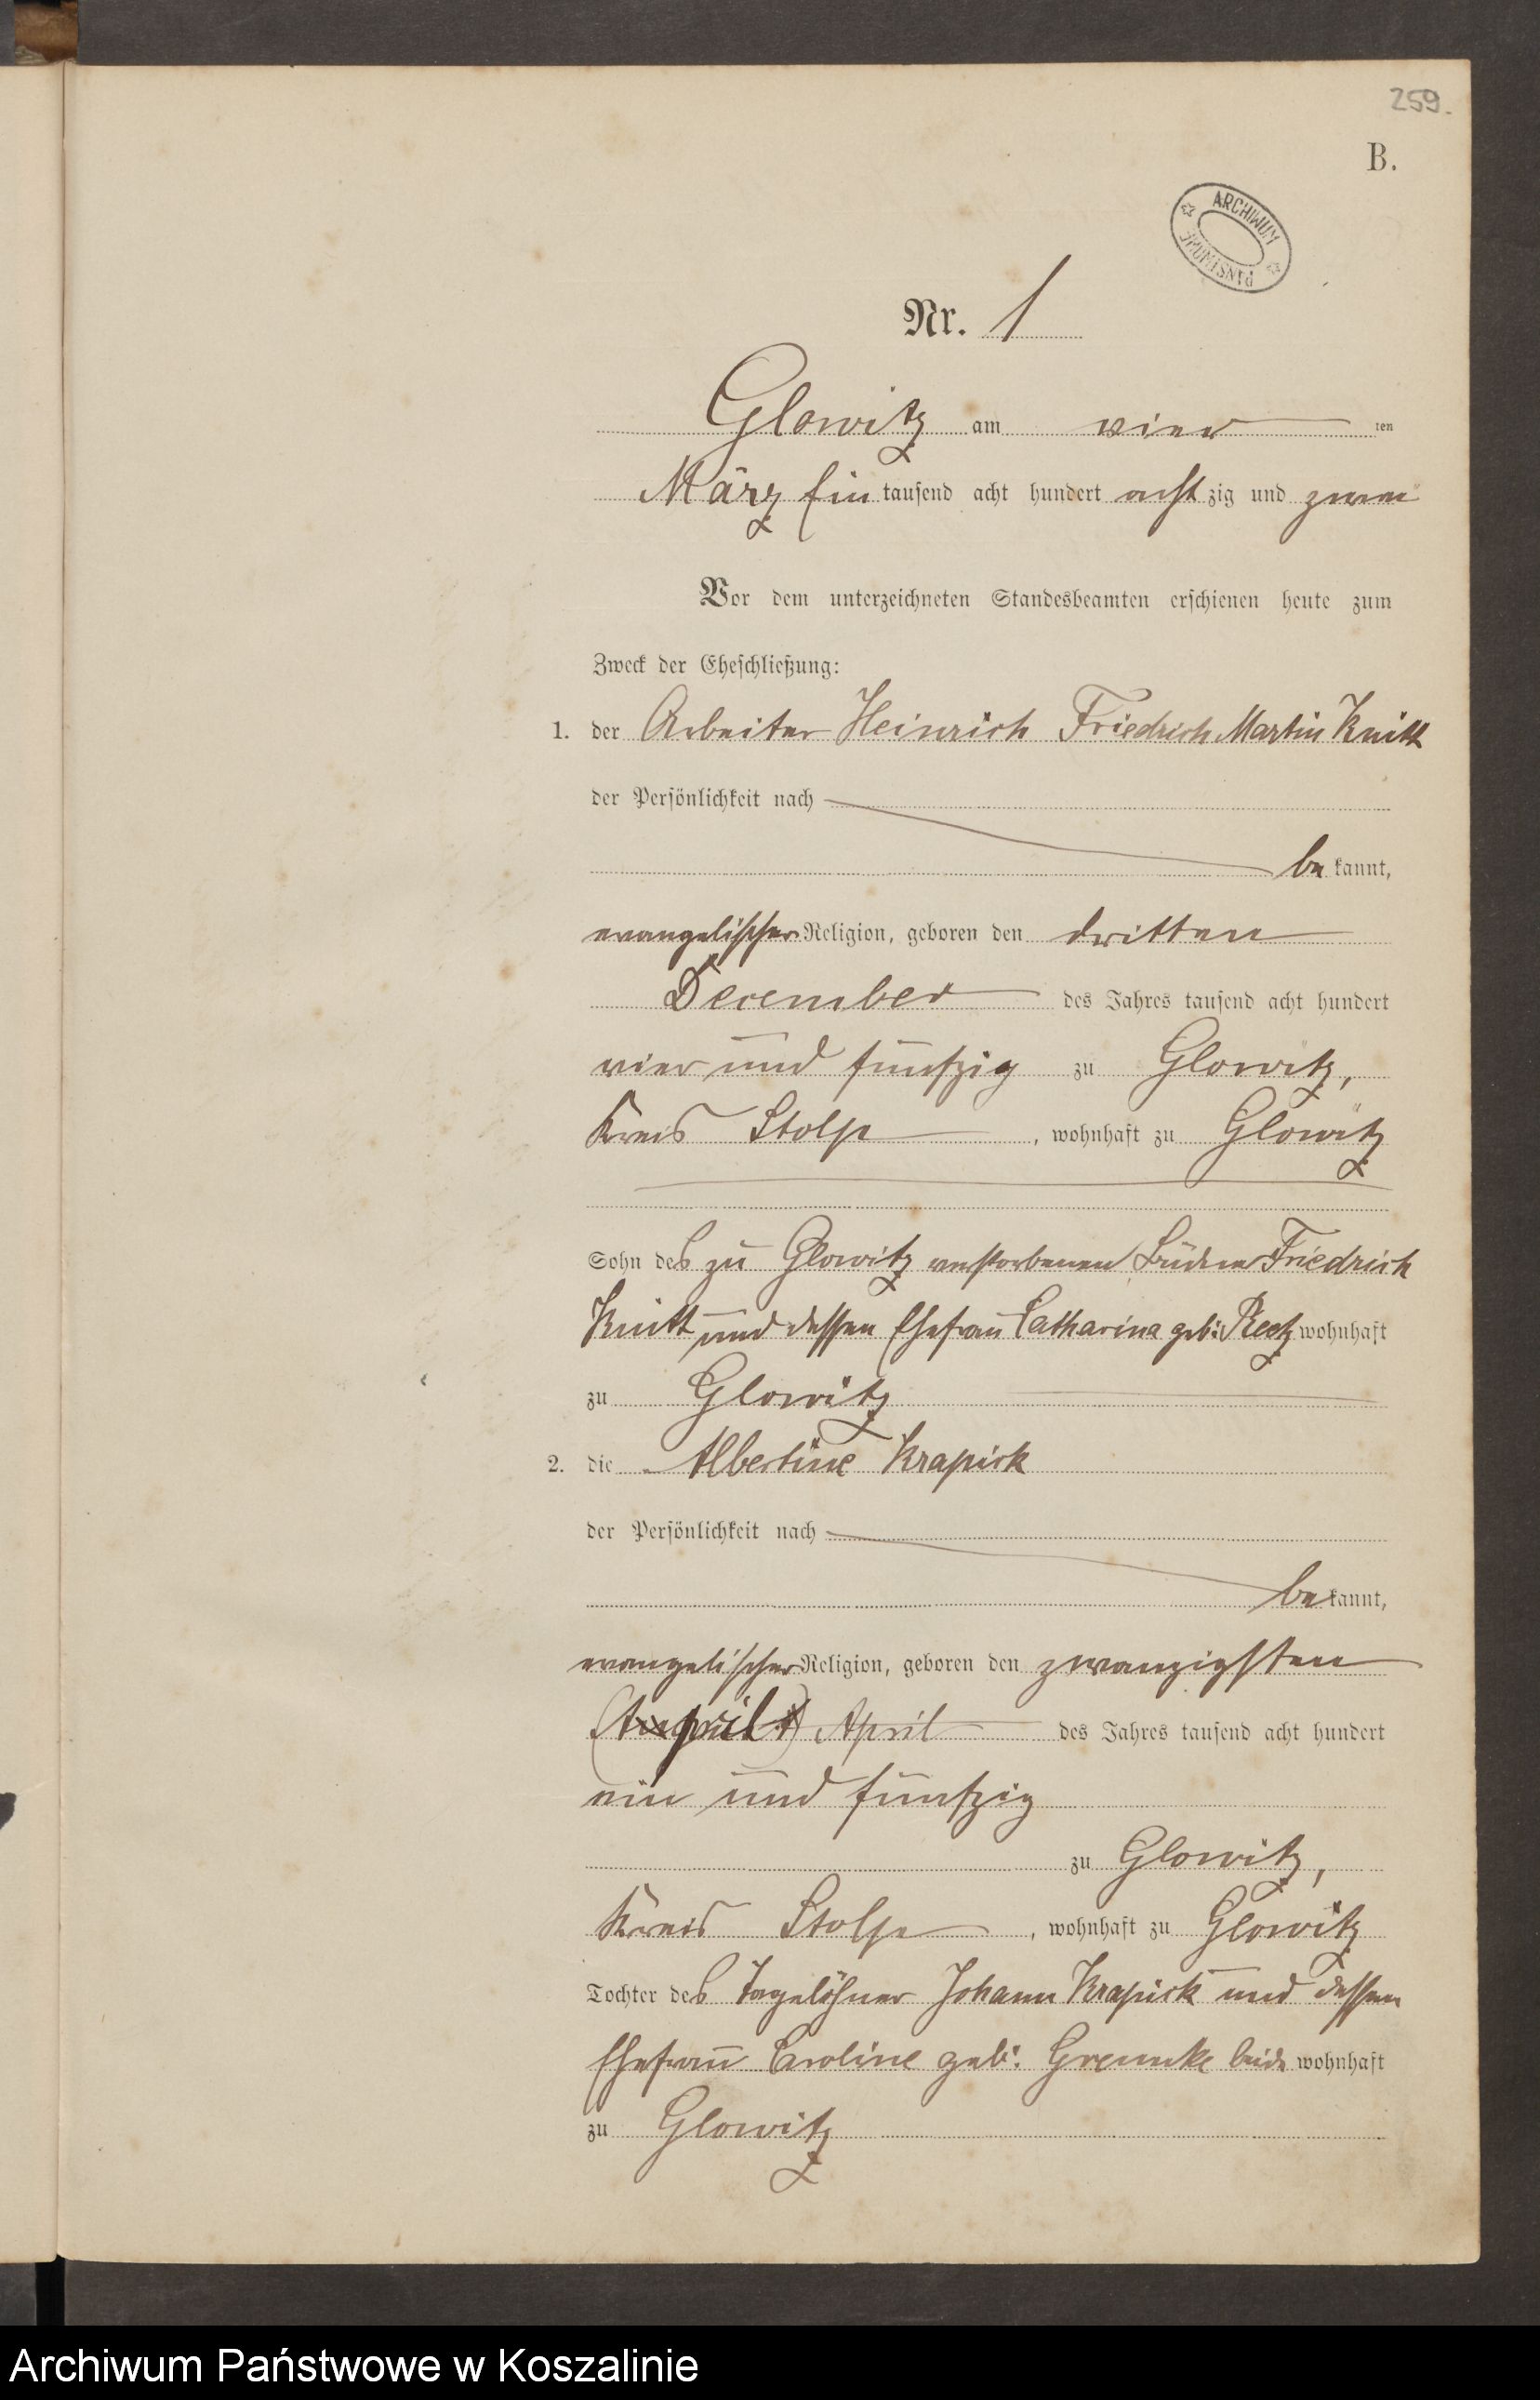 259.
B.
ARCHIWUM PAŃSTWOWE
Nr. 1
Glowitz am vier ten
März Ein tausend acht hundert acht zig und zwei
Vor dem unterzeichneten Standesbeamten erschienen heute zum
Zweck der Eheschließung:
1. der Arbeiter Heinrich Friedrich Martin Knitt
der Persönlichkeit nach
be kannt,
evangelischer Religion, geboren den dritten
December des Jahres tausend acht hundert
vier und fünfzig zu Glowitz,
Kreis Stolp , wohnhaft zu Glowitz
Sohn des zu Glowitz verstorbenen Büdner Friedrich
Knitt und dessen Ehefrau Catharina geb: Reetz wohnhaft
zu Glowitz
2. die Albertine Krapick
der Persönlichkeit nach
be kannt,
evangelischer Religion, geboren den zwanzigsten
April des Jahres tausend acht hundert
ein und fünfzig
zu Glowitz,
Kreis Stolp , wohnhaft zu Glowitz
Tochter des Tagelöhner Johann Krapick und dessen
Ehefrau Caroline geb: beide wohnhaft
zu Glowitz
Archiwum Państwowe w Koszalinie